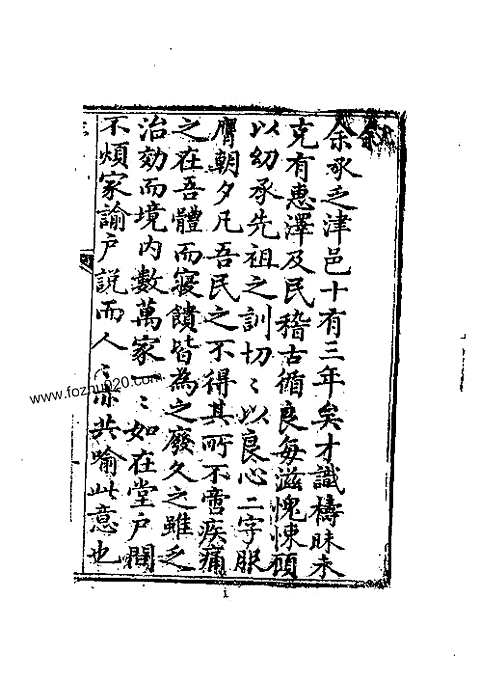 余承乏津邑十有三年矣才識檮昧未
克有惠澤及民稽古循良每滋愧悚顧
以幼承先祖之訓切〻以良心二字服
膺朝夕凡吾民之不得其所不啻疾痛
之在吾體而寢饋皆為之廢久之雖乏
治効而境内數萬家〻如在堂戶間
不煩家諭戶說而人〻亦共喻此意也
www.fozhup20.com
i